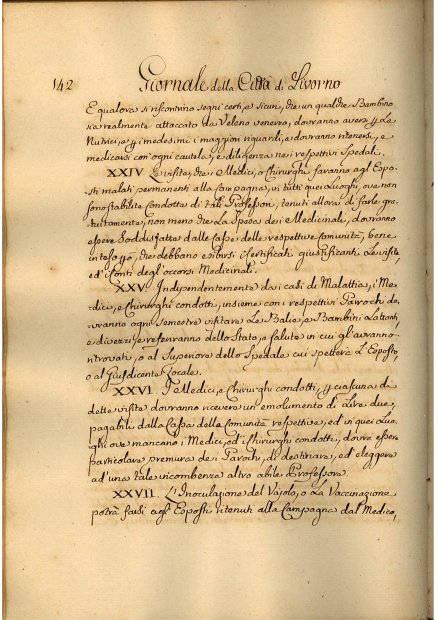 142 Giornale della Città di Livorno
E qualora si riscontrino segni certi, e sicuri, che un qualche Bambino
sia realmente attaccato da Veleno venereo, dovranno aversi per Le
Nutrici, e per i medesimi i maggiori riguardi, e dovranno ritenersi, e
medicarsi con ogni cautela, e diligenza nei respettivi Spedali.
XXIV. Le visite, che i Medici, o Chirurghi faranno agl' Espo-
sti malati, permanenti alla Campagna, in tutti quei Luoghi, ove non
sono stabilite Condotte di tali Professori, tenuti allora di farle gra-
tuitamente, non meno che La Spesa dei Medicinali, dovranno
essere Soddisfatte dalle Casse delle respettive Comunità, bene
inteso però, che debbano esibirsi i Certificati giustificanti Le visite,
ed i Conti degl' occorsi Medicinali.
XXV. Indipendentemente dai casi di Malattia, i Me-
dici, e Chirurghi condotti, insieme con i respettivi Parrochi do-
vranno ogni Semestre visitare Le Balie, e Bambini Lattanti,
e divezzi, e referiranno dello Stato, e Salute in cui gl' avranno
ritrovati, o al Superiore dello Spedale cui spetterà L'Esposto,
o al Giusdicente Locale.
XXVI. I Medici, e Chirurghi condotti, per ciascuna di
dette visite dovranno ricevere un' emolumento di Lire due,
pagabili dalla Cassa della Comunità respettiva, ed in quei Luo-
ghi ove mancano i Medici, ed i Chirurghi condotti, dovrà essere
particolare premura dei Parochi, di destinare, ed eleggere
ad una tale incombenza altro abile Professore.
XXVII. L'Inoculazione del Vajolo, o La Vaccinazione
potrà farsi agl' Esposti ritenuti alla Campagna dal Medico,